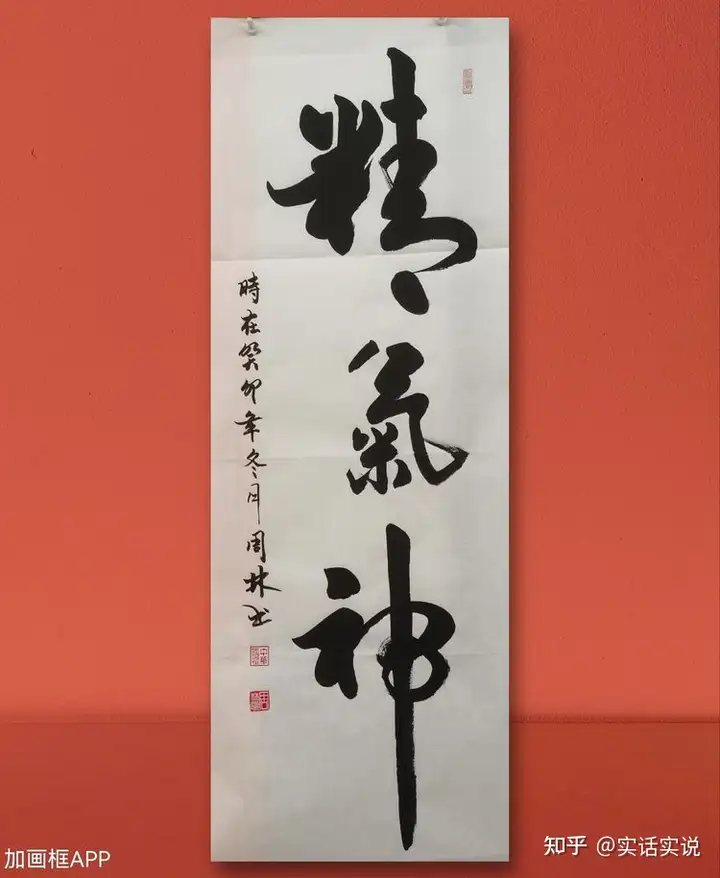 精氣神
時在癸卯年冬月周林书
加画框APP
知乎 @实话实说